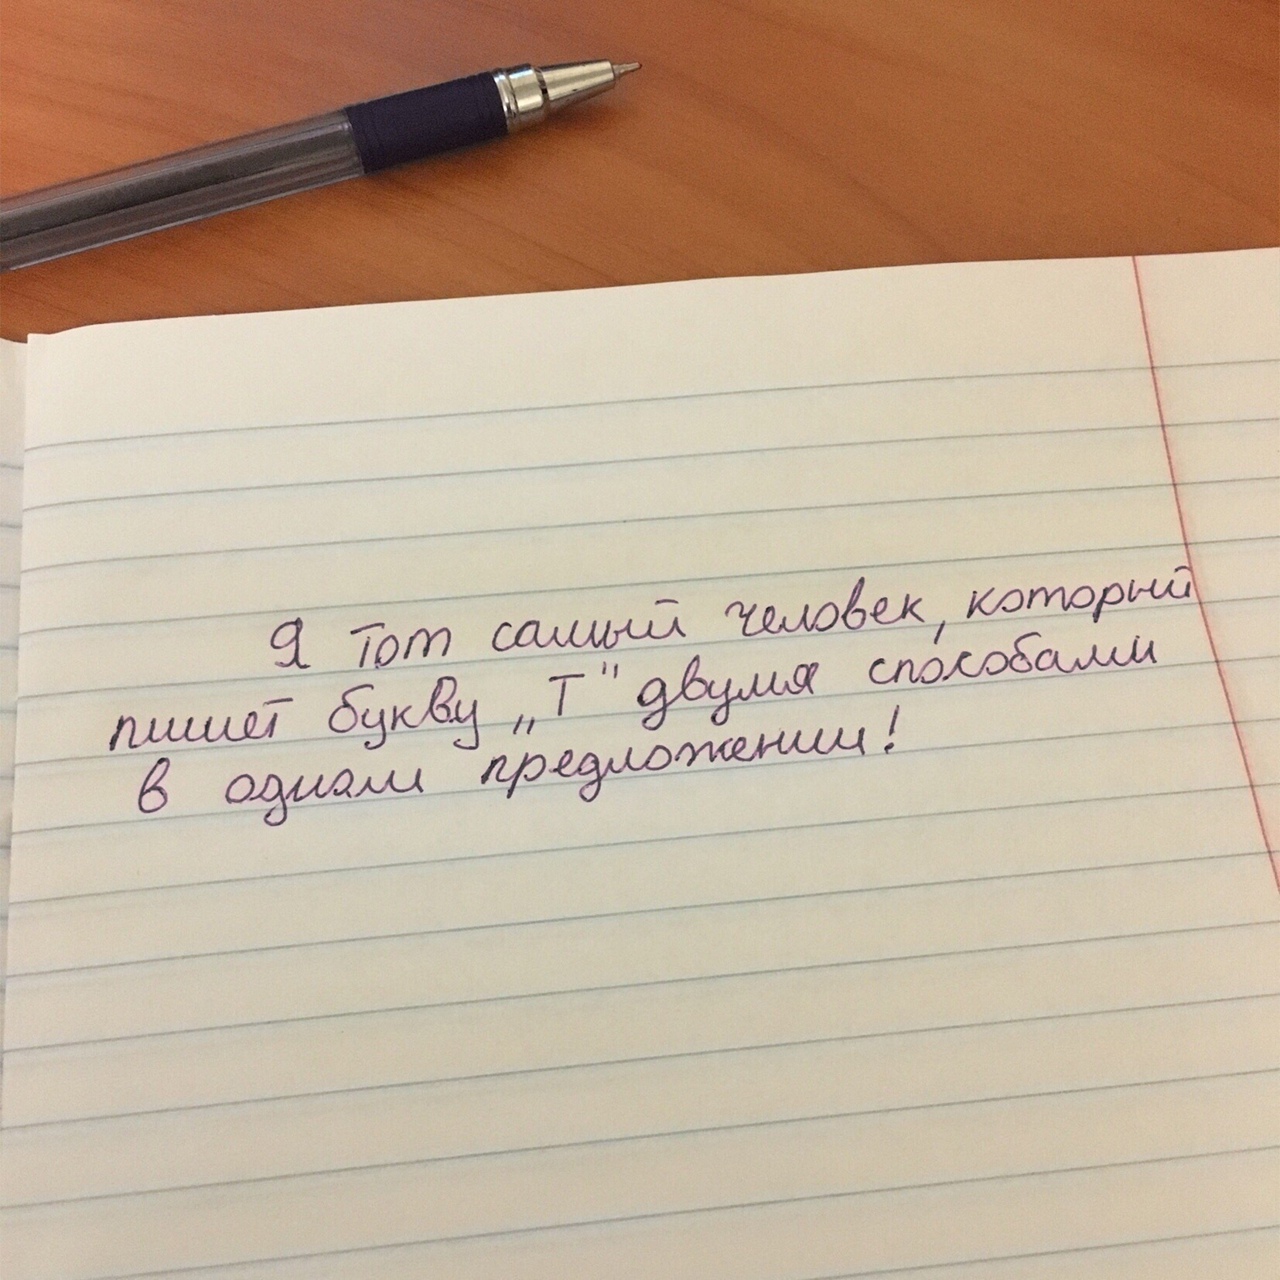 Я тот самый человек, который
пишет букву „Т" двумя способами
в одном предложении!